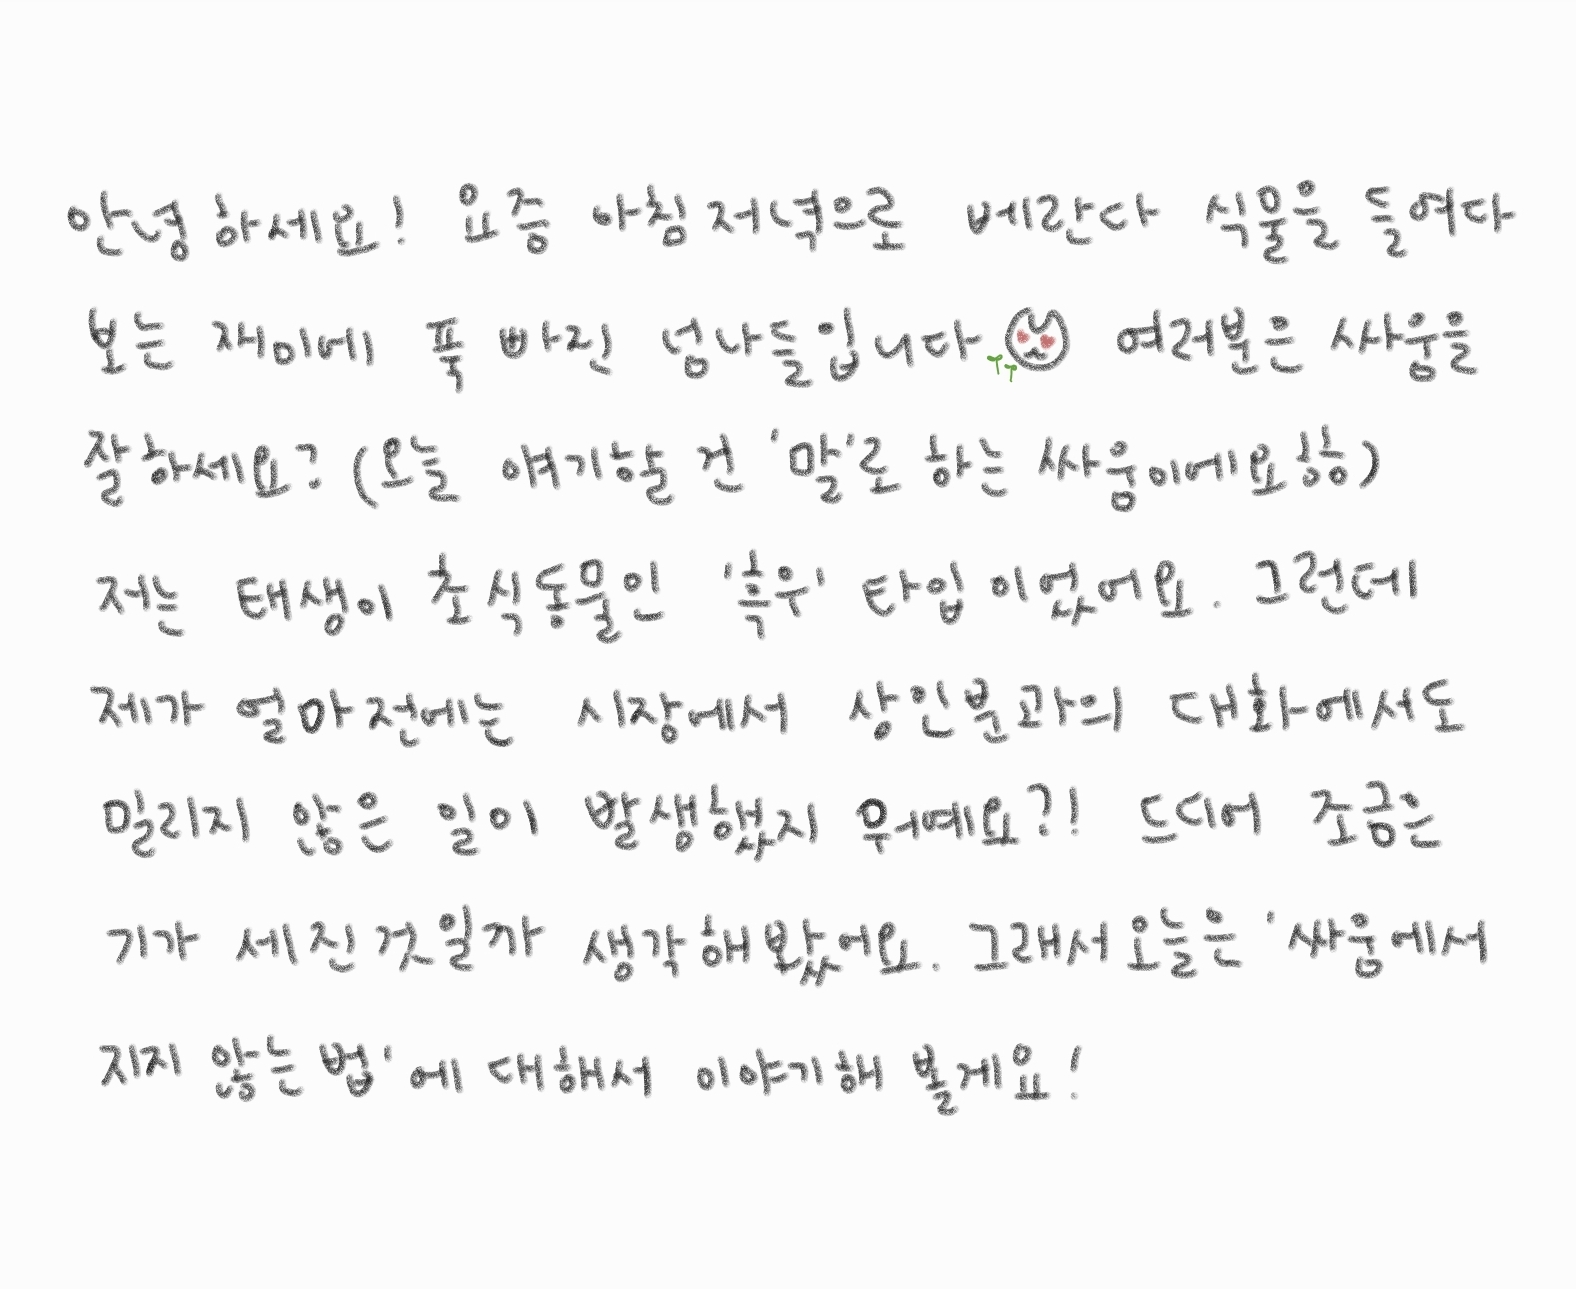 안녕하세요! 요즘 아침저녁으로 베란다 식물을 들여다
보는 재미에 푹 빠진 넘나들입니다 여러분은 싸움을
잘하세요? (오늘 얘기할 건 '말'로 하는 싸움이에요힣)
저는 태생이 초식동물인 '흑우' 타입이었어요. 그런데
제가 얼마전에는 시장에서 상인분과의 대화에서도
밀리지 않은 일이 발생했지 뭐예요?! 드디어 조금은
기가 세진것일까 생각해봤어요. 그래서오늘은 '싸움에서
지지 않는 법'에 대해서 이야기해 볼게요!